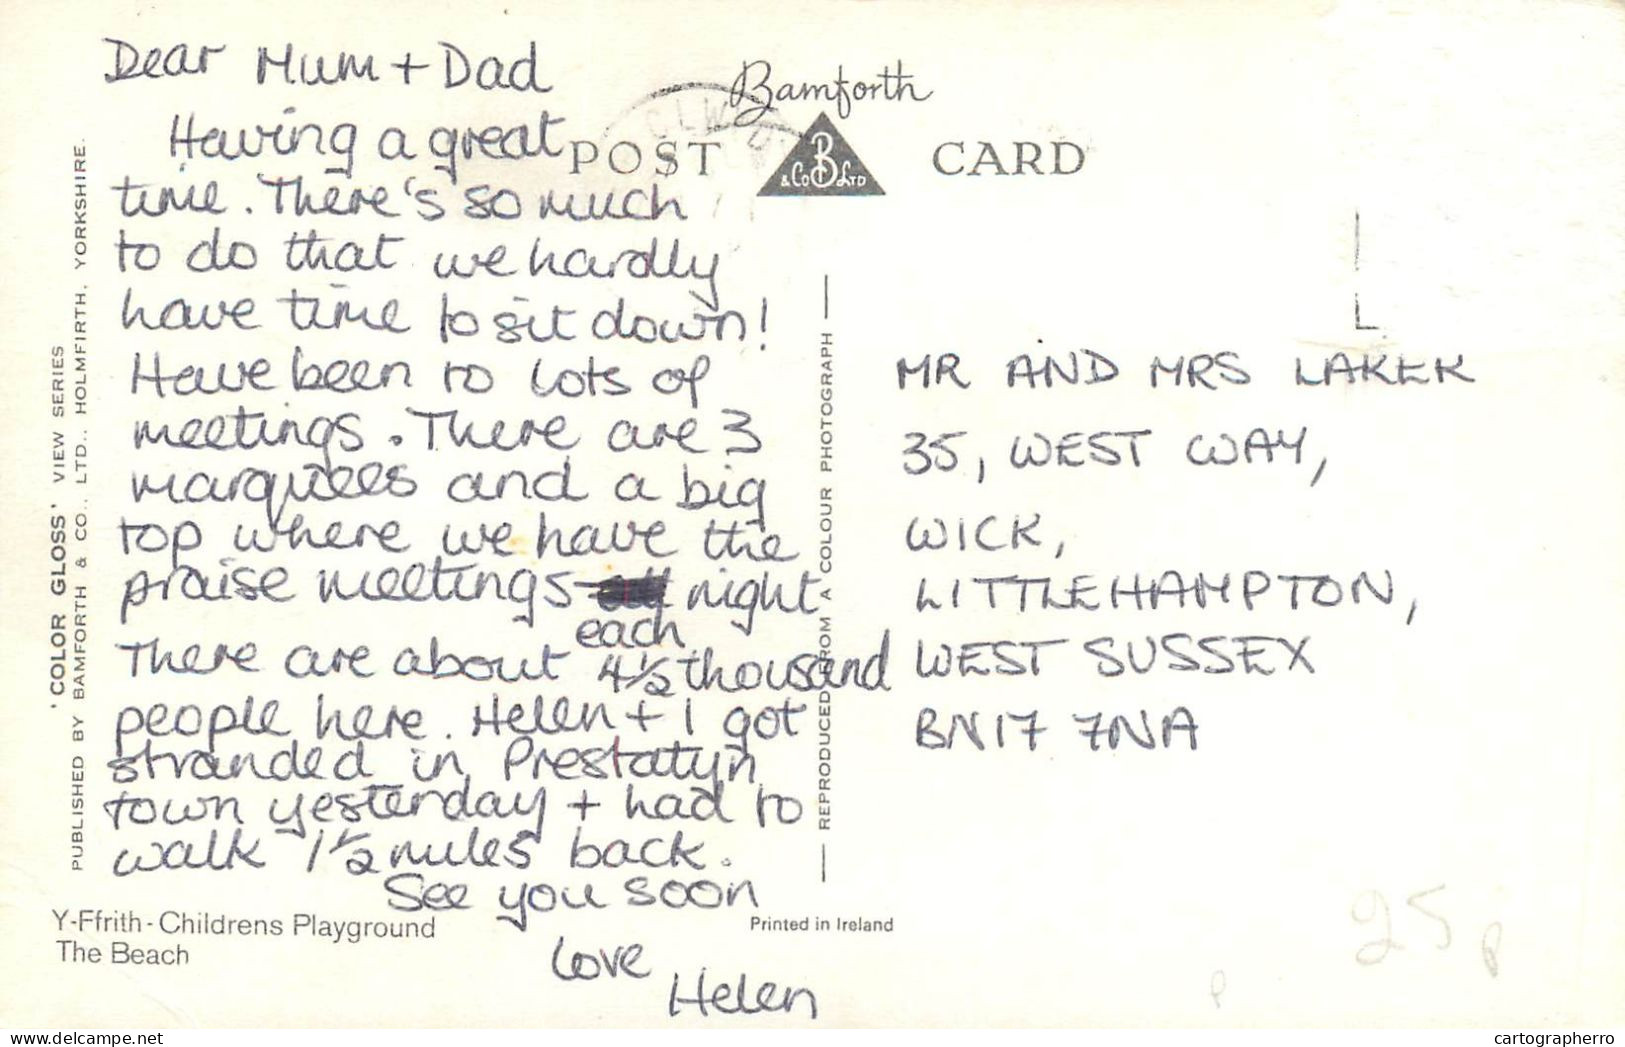 Dear Mum + Dad
Having a great
time. There's so much
to do that we hardly
have time to sit down!
Have been to lots of
meetings. There are 3
marquees and a big
top where we have the
praise meetings night
each
There are about 4½ thousand
people here. Helen + I got
stranded in Prestatyn
town yesterday + had to
walk 1½ miles back.
See you soon
Love
Helen
Bamforth
POST CARD
B
& Co Ltd
CLWYD
MR AND MRS LAKER
35, WEST WAY,
WICK,
LITTLEHAMPTON,
WEST SUSSEX
BN17 7NA
'COLOR GLOSS' VIEW SERIES
PUBLISHED BY BAMFORTH & CO., LTD., HOLMFIRTH, YORKSHIRE.
REPRODUCED FROM A COLOUR PHOTOGRAPH
Y-Ffrith - Childrens Playground
The Beach
Printed in Ireland
25p
P
www.delcampe.net
cartographerro